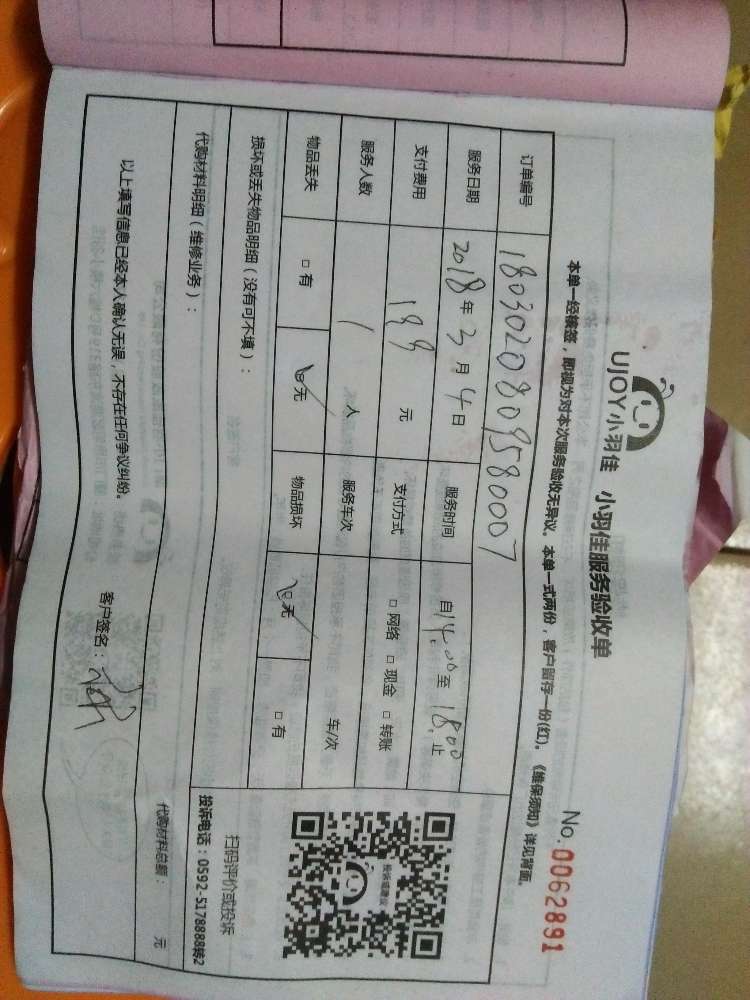 UJOY小羽佳 小羽佳服务验收单 No.0062891
本单一经核签，即视为对本次服务验收无异议。本单一式两份，客户留存一份(红)。《维保须知》详见背面。
订单编号 1803020809580007
服务日期 2018年3月4日 服务时间 自14:00至18:00止
支付费用 199元 支付方式 □网络 □现金 □转账
服务人数 1人 服务车次 车/次
物品丢失 □有 □无 物品损坏 □无 □有
损坏或丢失物品明细（没有可不填）：
扫码评价或投诉
投诉电话：0592-5178888转2
代购材料明细（维修业务）：
代购材料总额： 元
以上填写信息已经本人确认无误，不存在任何争议纠纷。
客户签名：